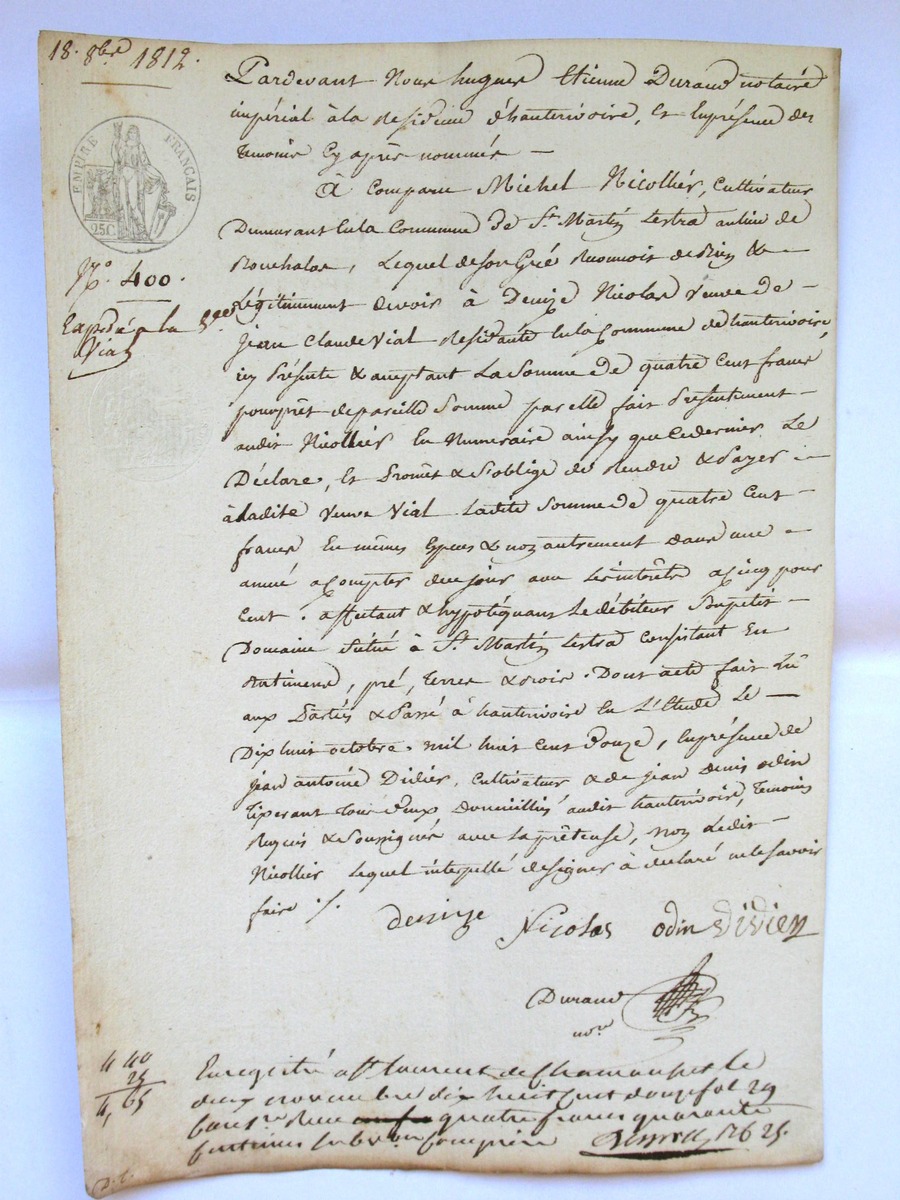 18. 8bre 1812.
EMPIRE FRANÇAIS
25C.
No. 400.
Expedié a la Vve
Vial
Pardevant Nous hugues Etienne Durand notaire
impérial à la Residence d'hauterivoire, et En présence des
temoins Cy après nommés —
à Comparu Michel Nicollier, Cultivateur
Demeurant En la Commune de St. Martin Lestra au lieu de
, Lequel de Son Gré Reconnoit de Bien &
Légitimement devoir à Denize Nicolas Veuve de
Jean Claude Vial Residante En la Commune de hauterivoire,
icy Présente & acceptant La Somme de quatre Cent francs
pour prêt de pareille Somme par elle fait Présentement
audit Nicollier En Numeraire ainsy que Ce dernier Le
Déclare, Et Promet & S'oblige de Rendre & Payer
à ladite Veuve Vial Ladite Somme de quatre Cent
francs En mêmes Espèces & non autrement dans une
année a Compter de ce jour avec Les intérêts a Cinq pour
Cent. affectant & hypotéquant Le débiteur Son petit
Domaine Situé à St. Martin Lestra Consistant En
Batimens, pré, terres & bois. Dont acte fait Lu
aux Parties & Passé à hauterivoire En L'Etude Le —
Dix huit octobre mil huit Cent Douze, En présence de
jean antoine Didier, Cultivateur & de jean denis odin
tixerant tous deux Domicilliés audit hauterivoire, Temoins
Requis & Soussignés avec La prêteuse, non Ledit
Nicollier Lequel interpellé de signer à declaré ne le Savoir
faire ./.
denize Nicolas odin Didier
Durand
nore
4 40
25
4,65
Enregistré a St laurent de Chamousset le
deux novembre dix huit cent douze fol 29
Reçu quatre francs quarante
centimes Subvon Comprise